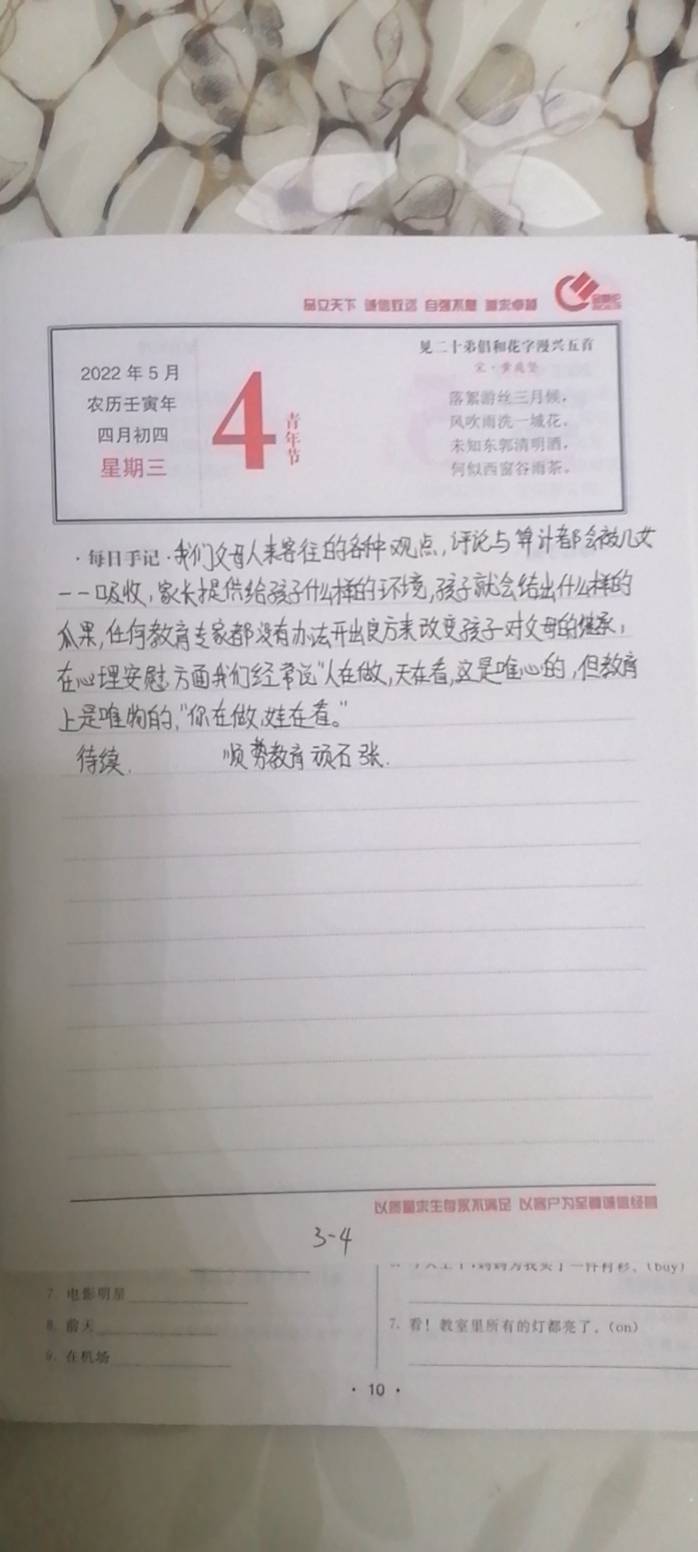 品立天下 诚信致远 自强不息 追求卓越
2022年5月
农历壬寅年
四月初四
星期三
4
青年节
见二十弟倡和花字漫兴五首
宋·黄庭坚
落絮游丝三月候，
风吹雨洗一城花。
未知东郭清明酒，
何似西窗谷雨茶。
·每日手记·我们父母人来客往的各种观点,评论与算计都会被儿女
一一吸收,家长提供给孩子什么样的环境,孩子就会结出什么样的
瓜果,任何教育专家都没有办法开出良方来改变孩子对父母的继承,
在心理安慰方面我们经常说"人在做,天在看,这是唯心的,但教育
上是唯物的,"你在做,娃在看。"
待续. 顺势教育 顽石 张.
以质量求生存永不满足 以客户为至尊诚信经营
3-4
7. 电影明星
8. 前天
9. 在机场
妈妈为我买了一件衬衫。(buy)
7. 看！教室里所有的灯都亮了。(on)
· 10 ·